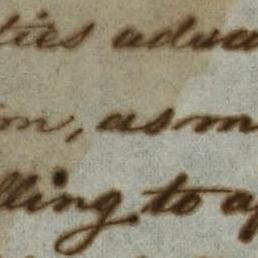 ties adva
on, as m
lling to ap